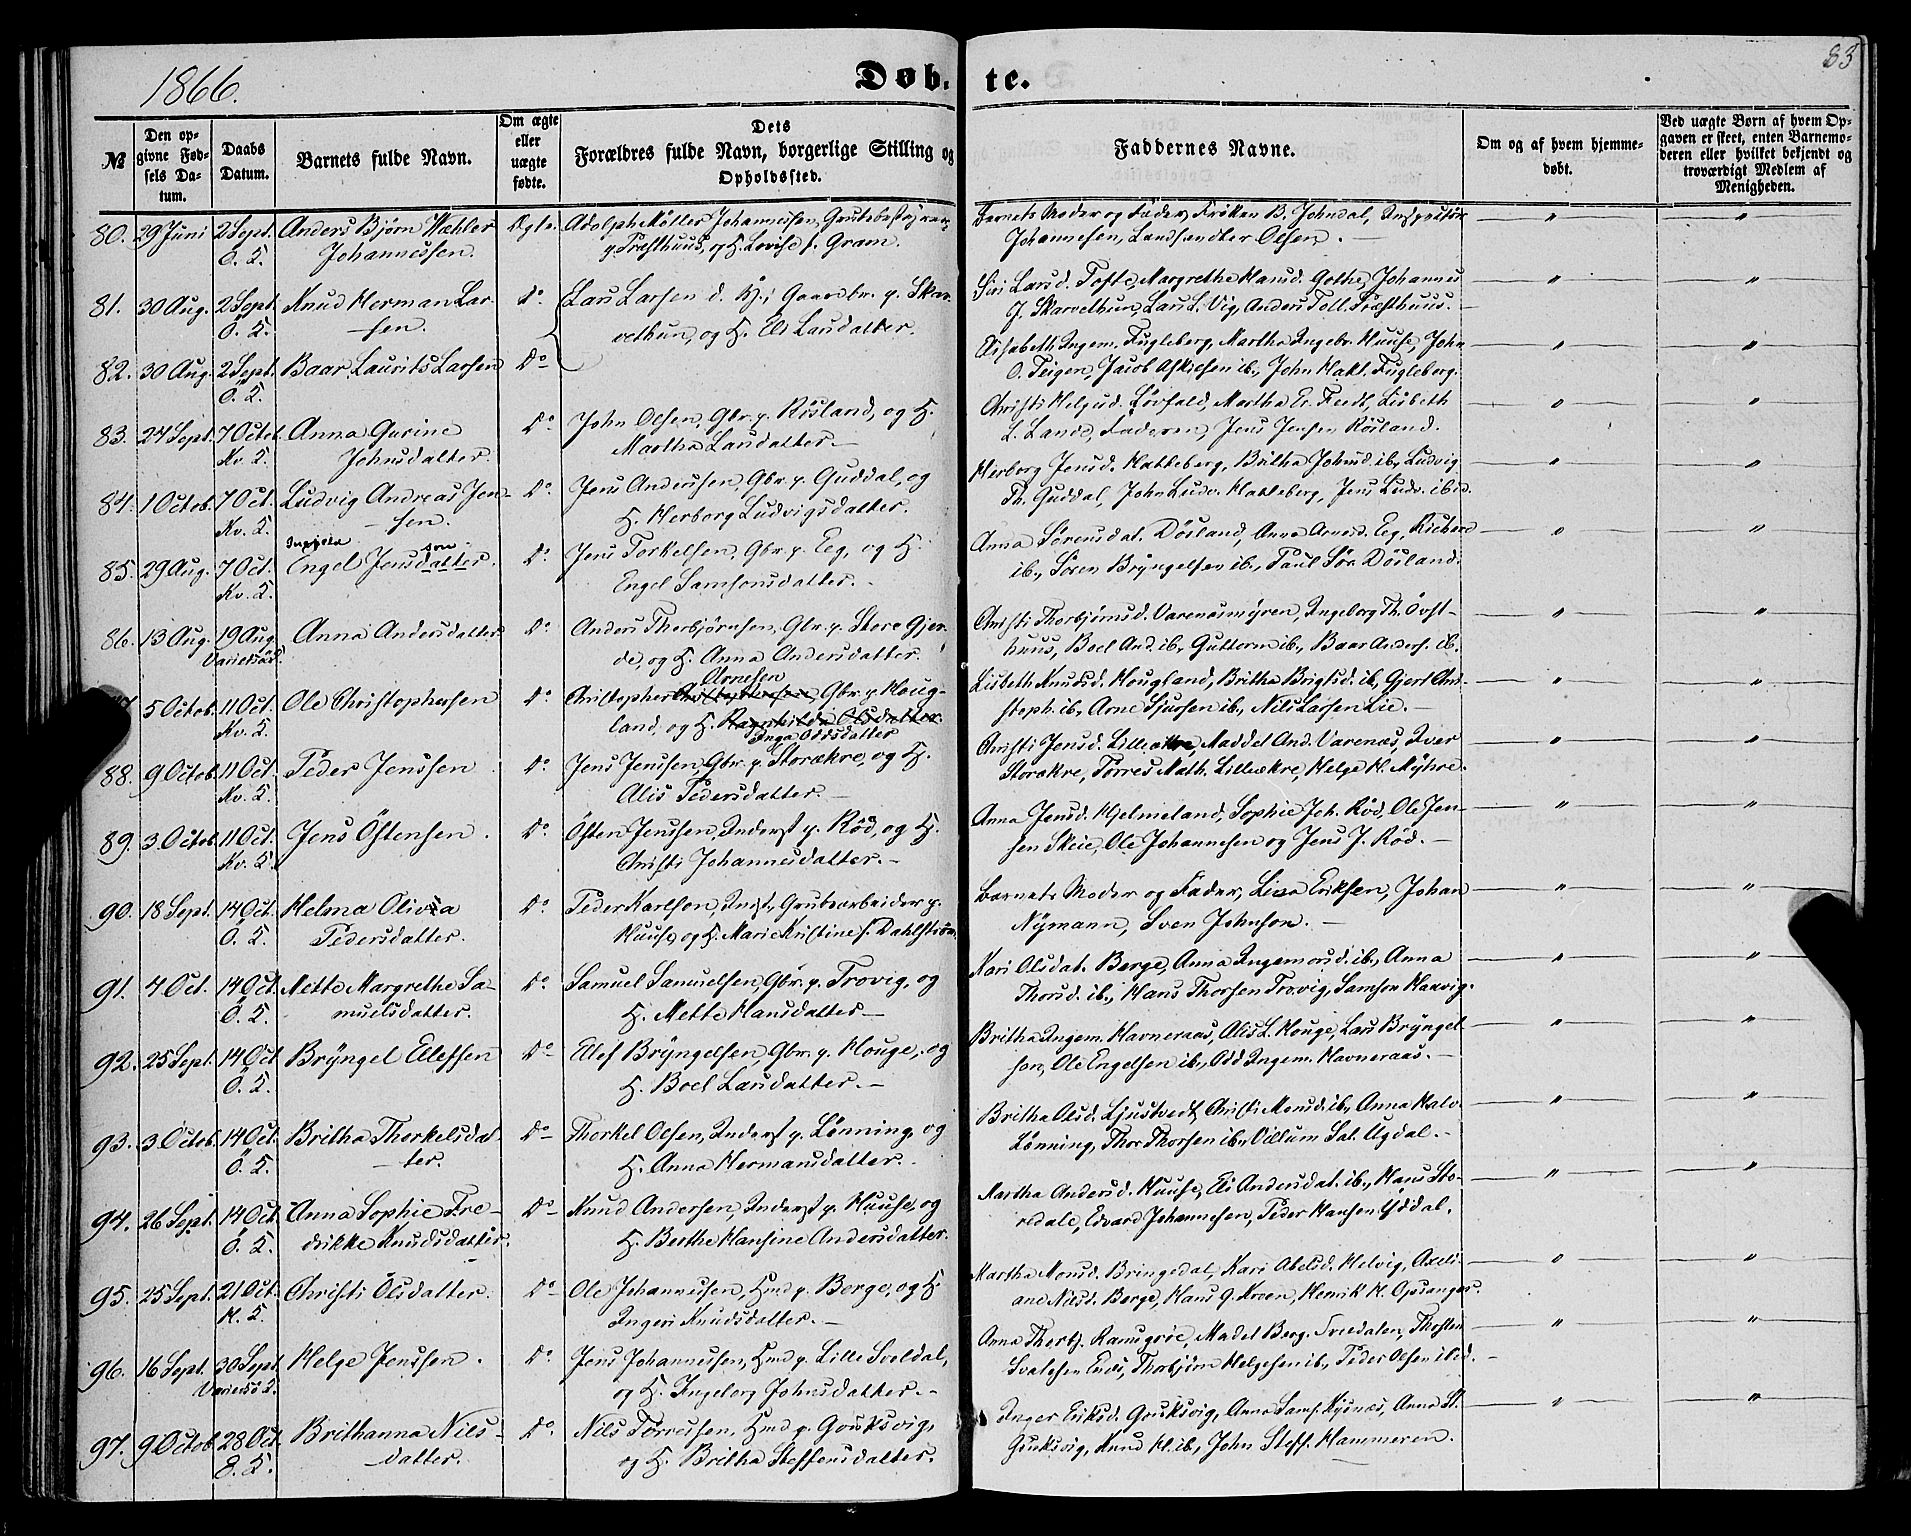 1866.
Døb.
te.
83
№
Den opgivne Fødsels Datum.
Daabs Datum.
Barnets fulde Navn.
Om ægte eller uægte fødte.
Dets Forældres fulde Navn, borgerlige Stilling og Opholdssted.
Faddernes Navne.
Om og af hvem hjemmedøbt.
Ved uægte Børn af hvem Opgaven er skeet, enten Barnemoderen eller hvilket bekjendt og troværdigt Medlem af Menigheden.
80. 29 Juni 2 Sept. Ö. K. Anders Bjørn Wæhler Johannessen. Ægte. Adolph Møller Johannessen, Grubebestyrer p. Præsthuus, og H. Lovise f. Gram.
Barnets Moder og Fader, Frøken B. Johndal, Johannesen, Landhandler Olsen. —
81. 30 Aug. 2 Sept. Ö. K. Knud Herman Larsen. Do Lars Larsen d. y., Gaardbr. p. Skarvethun, og H. Eli Larsdatter.
Siri Larsd. Tofte, Margrethe Hansd. Gothe, Johannes J. Skarvethun, Lars L. Vig, Anders Toll. Præsthuus. —
82. 30 Aug. 2 Sept. Ö. K. Baar Laurits Larsen Do
Elisabeth Ingem. Fugleberg, Martha Ingebr. Huuse, John O. Teigen, Jacob Askiesen ib., John Hakt. Fugleberg.
83. 24 Sept. 7 Octob. Kv. K. Anna Gurine Johnsdatter. Do John Olsen, Gbr. p. Røsland, og H. Martha Larsdatter. —
Christi Helgesd. Løvfald, Martha Er. Feedt, Lisbeth L. Lande, Faderen, Jens Jensen Røsland.
84. 1 Octob. 7 Oct. Kv. K. Ludvig Andreas Jensen. Do Jens Anderssen, Gbr. p. Guddal, og H. Herborg Ludvigsdatter.
Herborg Jensd. Hatteberg, Britha Johnsd. ib., Ludvig Th. Guddal, John Ludv. Hatteberg, Jens Ludv. ibid.
85. 29 Aug. 7 Oct. Kv. K. Engel Jensdatter. Do Jens Torkelsen, Gbr. p. Eeg, og H. Engel Samsonsdatter. —
Anna Sørensdat. Døsland, Anna Arnesd. Eeg, Rickert ib., Søren Brÿngelsen ib., Paul Sør. Døsland.
86. 13 Aug. 19 Aug. Anna Andersdatter Do Anders Thorbjørnsen, Gbr. p. Store Gjerde, og H. Anna Andersdatter.
Christi Thorbjørnsd. Varenæsmÿren, Ingeborg Th. Øvsthuus, Boel And. ib., Guttorm ib., Baar Anders. ib.
5 Octob. 11 Oct. Kv. K. Ole Christophersen Do Christopher Arnesen, Gbr. p. Hougland, og H. Ragnhilda Olsdatter. Inga Oddsdatter
Lisbeth Knudsd. Hougland, Britha Brigtsd. ib., Gjert Christoph. ib., Arne Sjursen ib., Nils Larsen Lie. —
88. 9 Octob. 11 Oct. Kv. K. Peder Jenssen Do Jens Jenssen, Gbr. p. Storækre, og H. Alis Pedersdatter. —
Christi Jensd. Lilleækre, Maddel And. Varenæs, Iver Storækre, Torres Math. Lilleækre, Helge H. Mÿhre.
89. 3 Octob. 11 Oct. Kv. K. Jens Östensen. Do Östen Jenssen, Inderst p. Rød, og H. Christi Johannesdatter. —
Anna Jensd. Hjelmeland, Sophie Joh. Rød, Ole Jensen Skeie, Ole Johannesen og Jens J. Rød. —
90. 18 Sept. 14 Oct. Ö. K. Helma Olivia Pedersdatter. Do Peder Karlson, Indst., Grubearbeider p. Huuse, og H. Marie Kristine f. Dahlström.
Barnets Moder og Fader, Lisa Eriksen, Johan Nÿmann, Sven Johnson. —
91. 4 Oct. 14 Oct. Ö. K. Mette Margrethe Samuelsdatter. Do Samuel Samuelsen, Gbr. p. Trovig, og H. Mette Hansdatter. —
Kari Olsdat. Berge, Anna Ingemorsd. ib., Anna Thorsd. ib., Hans Thorsen Trovig, Samson Haavig.
92. 25 Sept. 14 Oct. Ö. K. Brÿngel Ellefsen Do Elef Brÿngelsen, Gbr. p. Houge, og H. Boel Larsdatter. —
Britha Ingem. Havneraas, Alis L. Houge, Lars Brÿngelsen, Ole Engelsen ib., Odd Ingem. Havneraas. —
93. 3 Octob. 14 Oct. Ö. K. Britha Thorkelsdatter. Do Thorkel Olsen, Inderst p. Lønning, og H. Anna Hermansdatter.
Britha Olsd. Ljustvedt, Christi Monsd. ib., Anna Halv. Lønning, Thor Thorsen ib., Villum Sal. Ugdal. —
94. 26 Sept. 14 Oct. Ö. K. Anna Sophie Fredrikke Knudsdatter. Do Knud Andersen, Inderst p. Huuse, og H. Berthe Hansine Andersdatter.
Martha Andersd. Huuse, Eli Andersdat. ib., Hans Storedale, Edvard Johannesen, Peder Hansen Ugdal.
95. 25 Sept. 21 Oct. H. K. Christi Olsdatter. Do Ole Johannesen, Hmd p. Berge, og H. Ingeri Knudsdatter. —
Martha Monsd. Bringedal, Kari Abelsd. Helvig, Axeliane Nilsd. Berge, Hans G. Kroen, Henrik H. Opsanger.
96. 16 Sept. 30 Sept. Helge Jenssen. Do Jens Johannessen, Hmd p. Lille Sveldal, og H. Ingeborg Johnsdatter. —
Anna Thorbj. Ramsgrøe, Madel Berg. Svedalen, Thosten Svalesen Enæs, Thorbjørn Helgesen ib., Peder Olsen ibid. —
97. 9 Octob. 28 Oct. Ö. K. Brithanna Nilsdatter. Do Nils Torressen, Hmd p. Gouksvig, og H. Britha Steffensdatter.
Inger Eriksd. Gouksvig, Anna Sams. Kysnæs, Anna St. Gouksvig, Knud H. ib., John Steff. Hammeren.